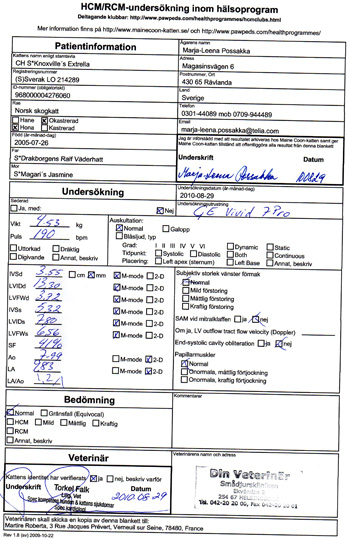 HCM/RCM-undersökning inom hälsoprogram
Deltagande klubbar: http://www.pawpeds.com/healthprogrammes/hcmclubs.html
Mer information finns på http://www.mainecoon-katten.se/ och http://www.pawpeds.com/healthprogrammes/
Patientinformation
Kattens namn enligt stamtavla
CH S*Knoxville´s Extrella
Registreringsnummer
(S)Sverak LO 214289
ID-nummer (obligatoriskt)
968000004276060
Ras
Norsk skogkatt
Hane Okastrerad
Hona Kastrerad
Född (år-månad-dag)
2005-07-26
Far
S*Drakborgens Ralf Väderhatt
Mor
S*Magari´s Jasmine
Ägarens namn
Marja-Leena Possakka
Adress
Magasinsvägen 6
Postnummer, Ort
430 65 Rävlanda
Land
Sverige
Telefon
0301-44089 mob 0709-944489
Email
marja-leena.possakka@telia.com
Underskrift Datum
Marja-Leena Possakka
Undersökning
Sederad
Ja, med: Nej
Vikt 4.53 kg
Puls 190 bpm
Uttorkad Dräktig
Digivande Annat, beskriv
Undersökningsdatum (år-månad-dag)
2010-08-29
Undersökningsutrustning
GE Vivid 7 Pro
Auskultation:
Normal Galopp
Blåsljud, typ
Grad: I II III IV V VI Dynamic Static
Tidpunkt: Systolic Diastolic Both Continuous
Placering: Left apex (sternum) Left Base Annat, beskriv
IVSd 3.55 cm mm M-mode 2-D
LVIDd M-mode 2-D
LVFWd M-mode 2-D
IVSs M-mode 2-D
LVIDs M-mode 2-D
LVFWs 6.56 M-mode 2-D
SF
Ao 7.99 M-mode 2-D
LA M-mode 2-D
LA/Ao 1.21
Subjektiv storlek vänster förmak
Normal
Mild förstoring
Måttlig förstoring
Kraftig förstoring
SAM vid mitralklaffen ja nej
Om ja, LV outflow tract flow velocity (Doppler)
End-systolic cavity obliteration ja nej
Papillarmuskler
Normal
Onormala, måttlig förtjockning
Onormala, kraftig förtjockning
Bedömning
Normal Gränsfall (Equivocal)
HCM Mild Måttlig Kraftig
RCM
Annat, beskriv
Kommentarer
Veterinär
Kattens identitet har verifierats ja nej, beskriv varför
Underskrift Datum
Torkel Falk
Leg. Vet
2010.08.29
Veterinärens namn och adress
Din Veterinär
Smådjurskliniken
Veterinären skall skicka en kopia av denna blankett till:
Martine Roberts, 3 Rue Jacques Prévert, Verneuil sur Seine, 78480, France
Rev 1.8 (sv) 2009-10-22